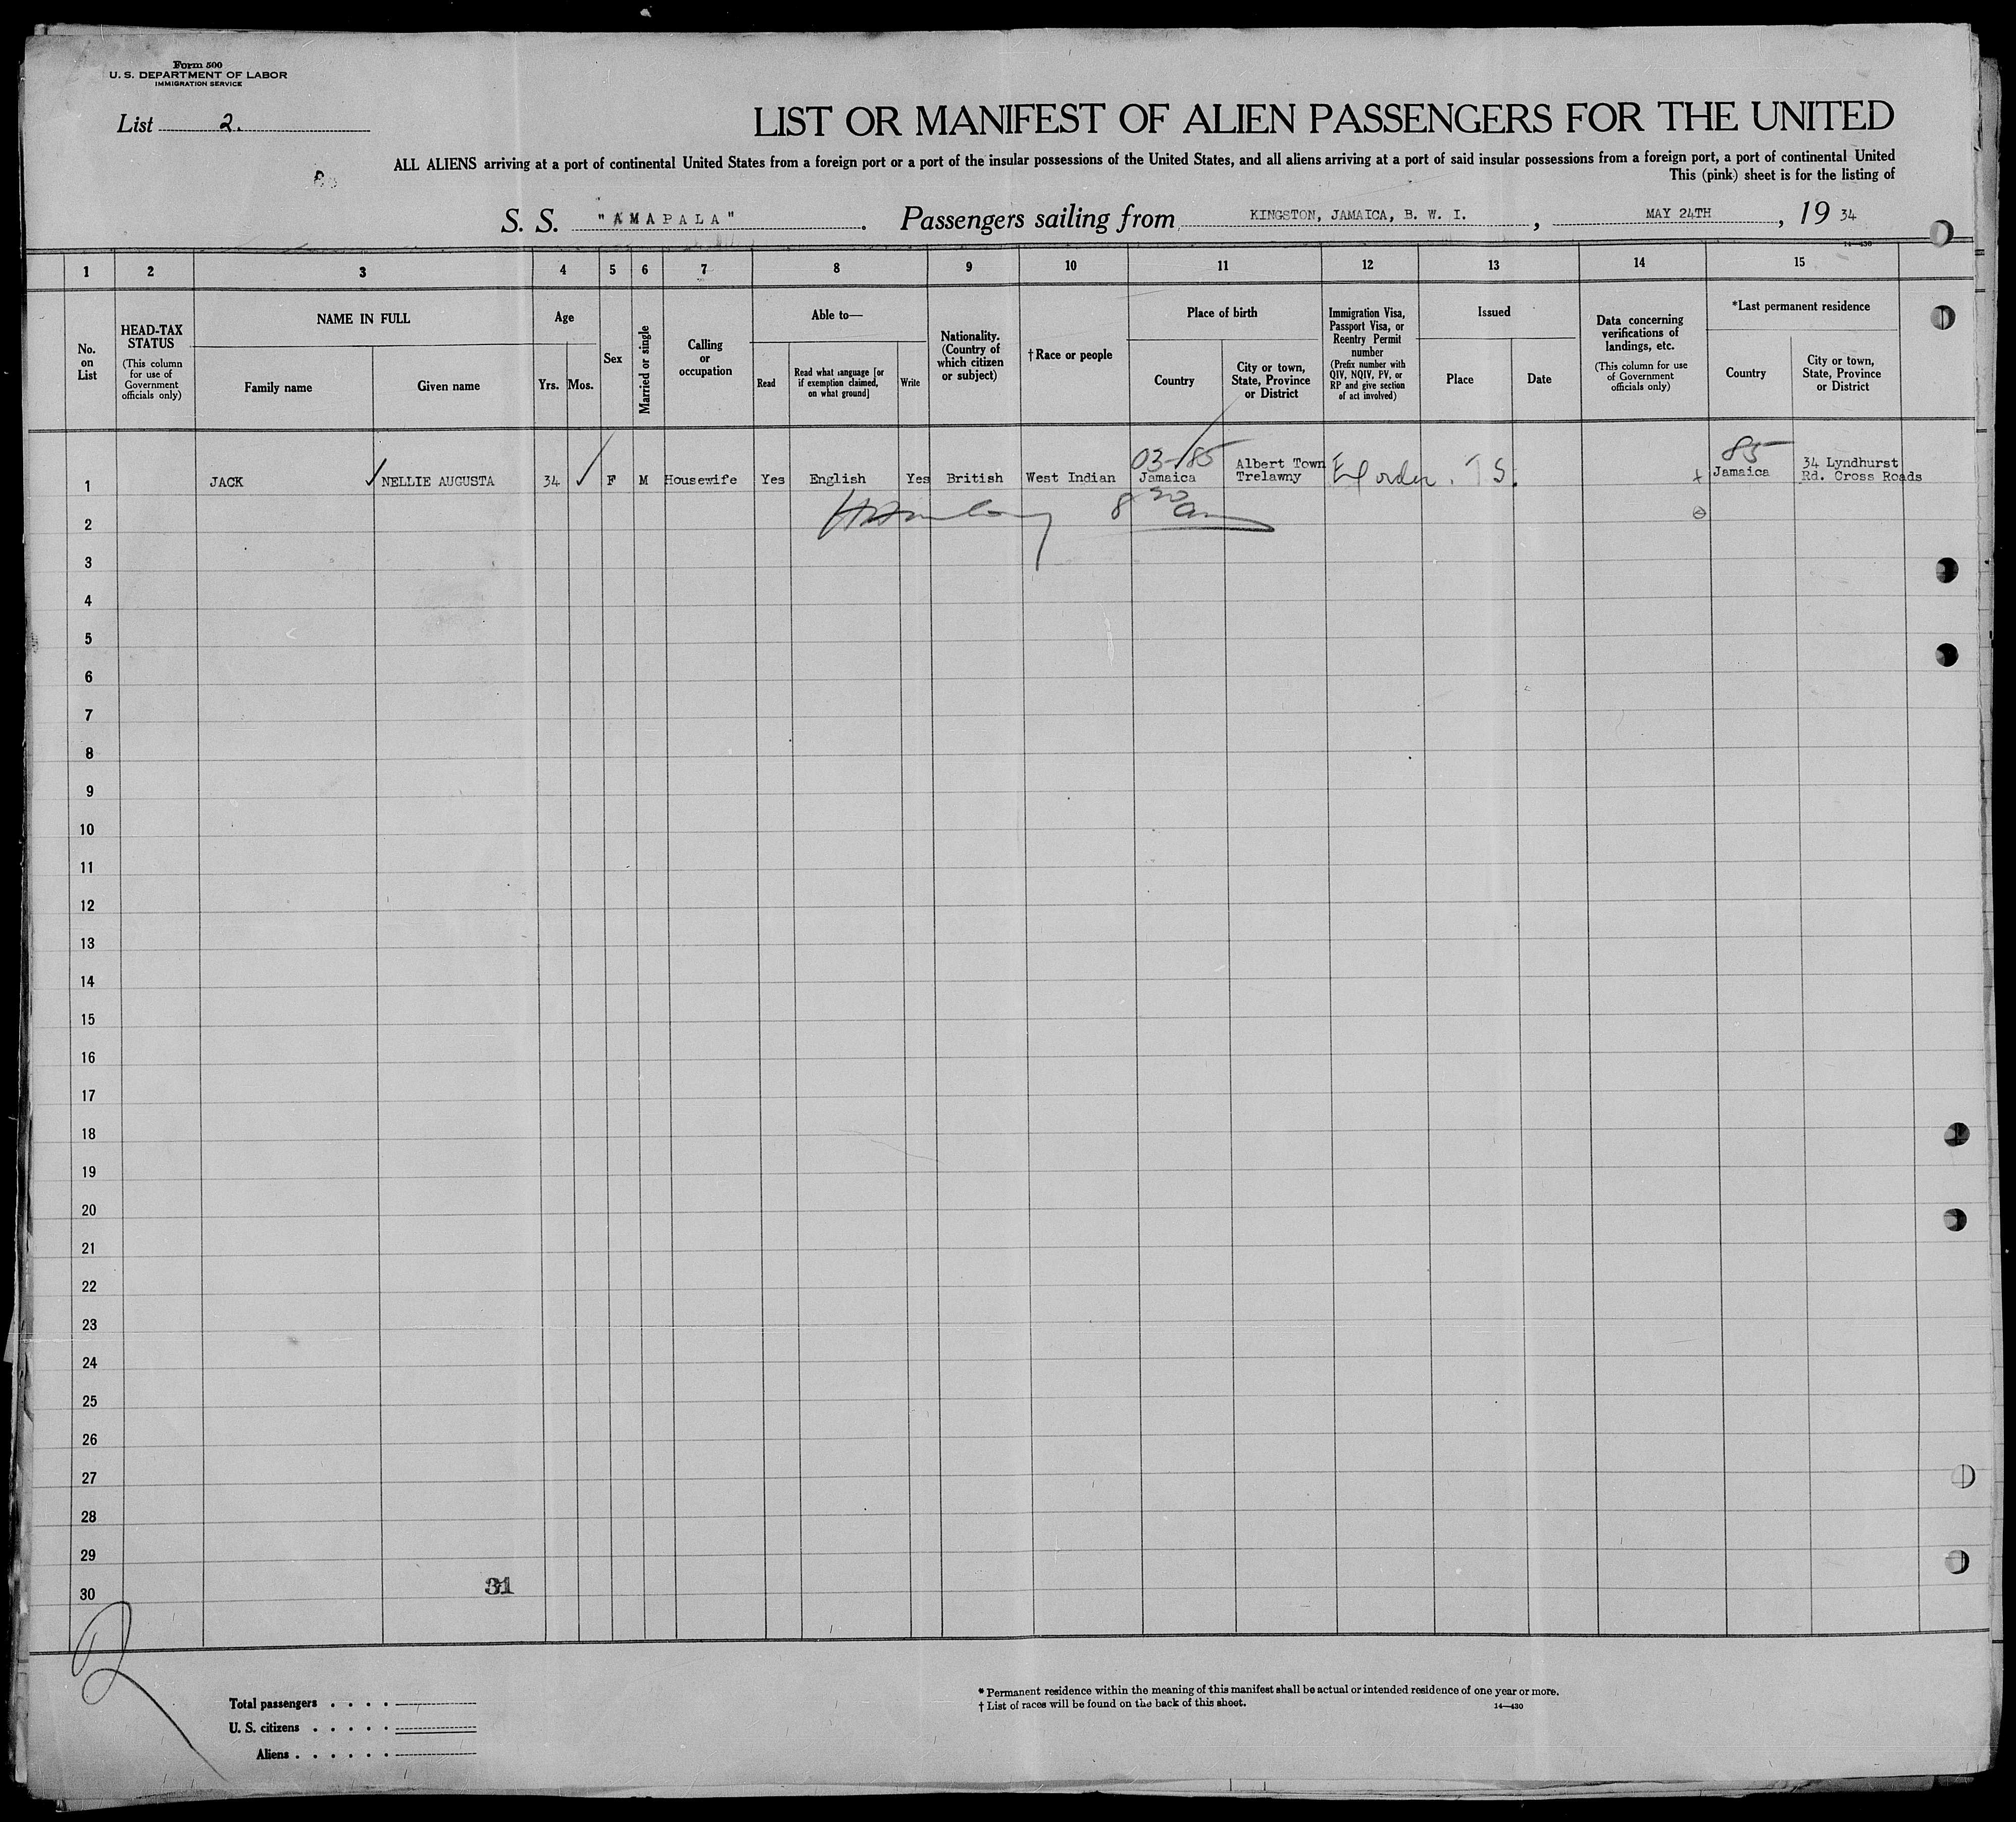 Form 500
U. S. DEPARTMENT OF LABOR
IMMIGRATION SERVICE
List 2.
LIST OR MANIFEST OF ALIEN PASSENGERS FOR THE UNITED
ALL ALIENS arriving at a port of continental United States from a foreign port or a port of the insular possessions of the United States, and all aliens arriving at a port of said insular possessions from a foreign port, a port of continental United
This (pink) sheet is for the listing of
S. S. "AMAPALA". Passengers sailing from KINGSTON, JAMAICA, B. W. I., MAY 24TH, 19 34
14—430
1 2 3 4 5 6 7 8 9 10 11 12 13 14 15
No. on List
HEAD-TAX STATUS
(This column for use of Government officials only)
NAME IN FULL
Family name
Given name
Age
Yrs.
Mos.
Sex
Married or single
Calling or occupation
Able to—
Read
Read what language [or if exemption claimed, on what ground]
Write
Nationality. (Country of which citizen or subject)
†Race or people
Place of birth
Country
City or town, State, Province or District
Immigration Visa, Passport Visa, or Reentry Permit number
(Prefix number with QIV, NQIV, PV, or RP and give section of act involved)
Issued
Place
Date
Data concerning verifications of landings, etc.
(This column for use of Government officials only)
*Last permanent residence
Country
City or town, State, Province or District
03-85
85
1 JACK NELLIE AUGUSTA 34 F M Housewife Yes English Yes British West Indian Jamaica Albert Town Trelawny order. Jamaica 34 Lyndhurst Rd. Cross Roads
2
3
4
5
6
7
8
9
10
11
12
13
14
15
16
17
18
19
20
21
22
23
24
25
26
27
28
29
30
31
Total passengers
U. S. citizens
Aliens
* Permanent residence within the meaning of this manifest shall be actual or intended residence of one year or more.
† List of races will be found on the back of this sheet.
14—430